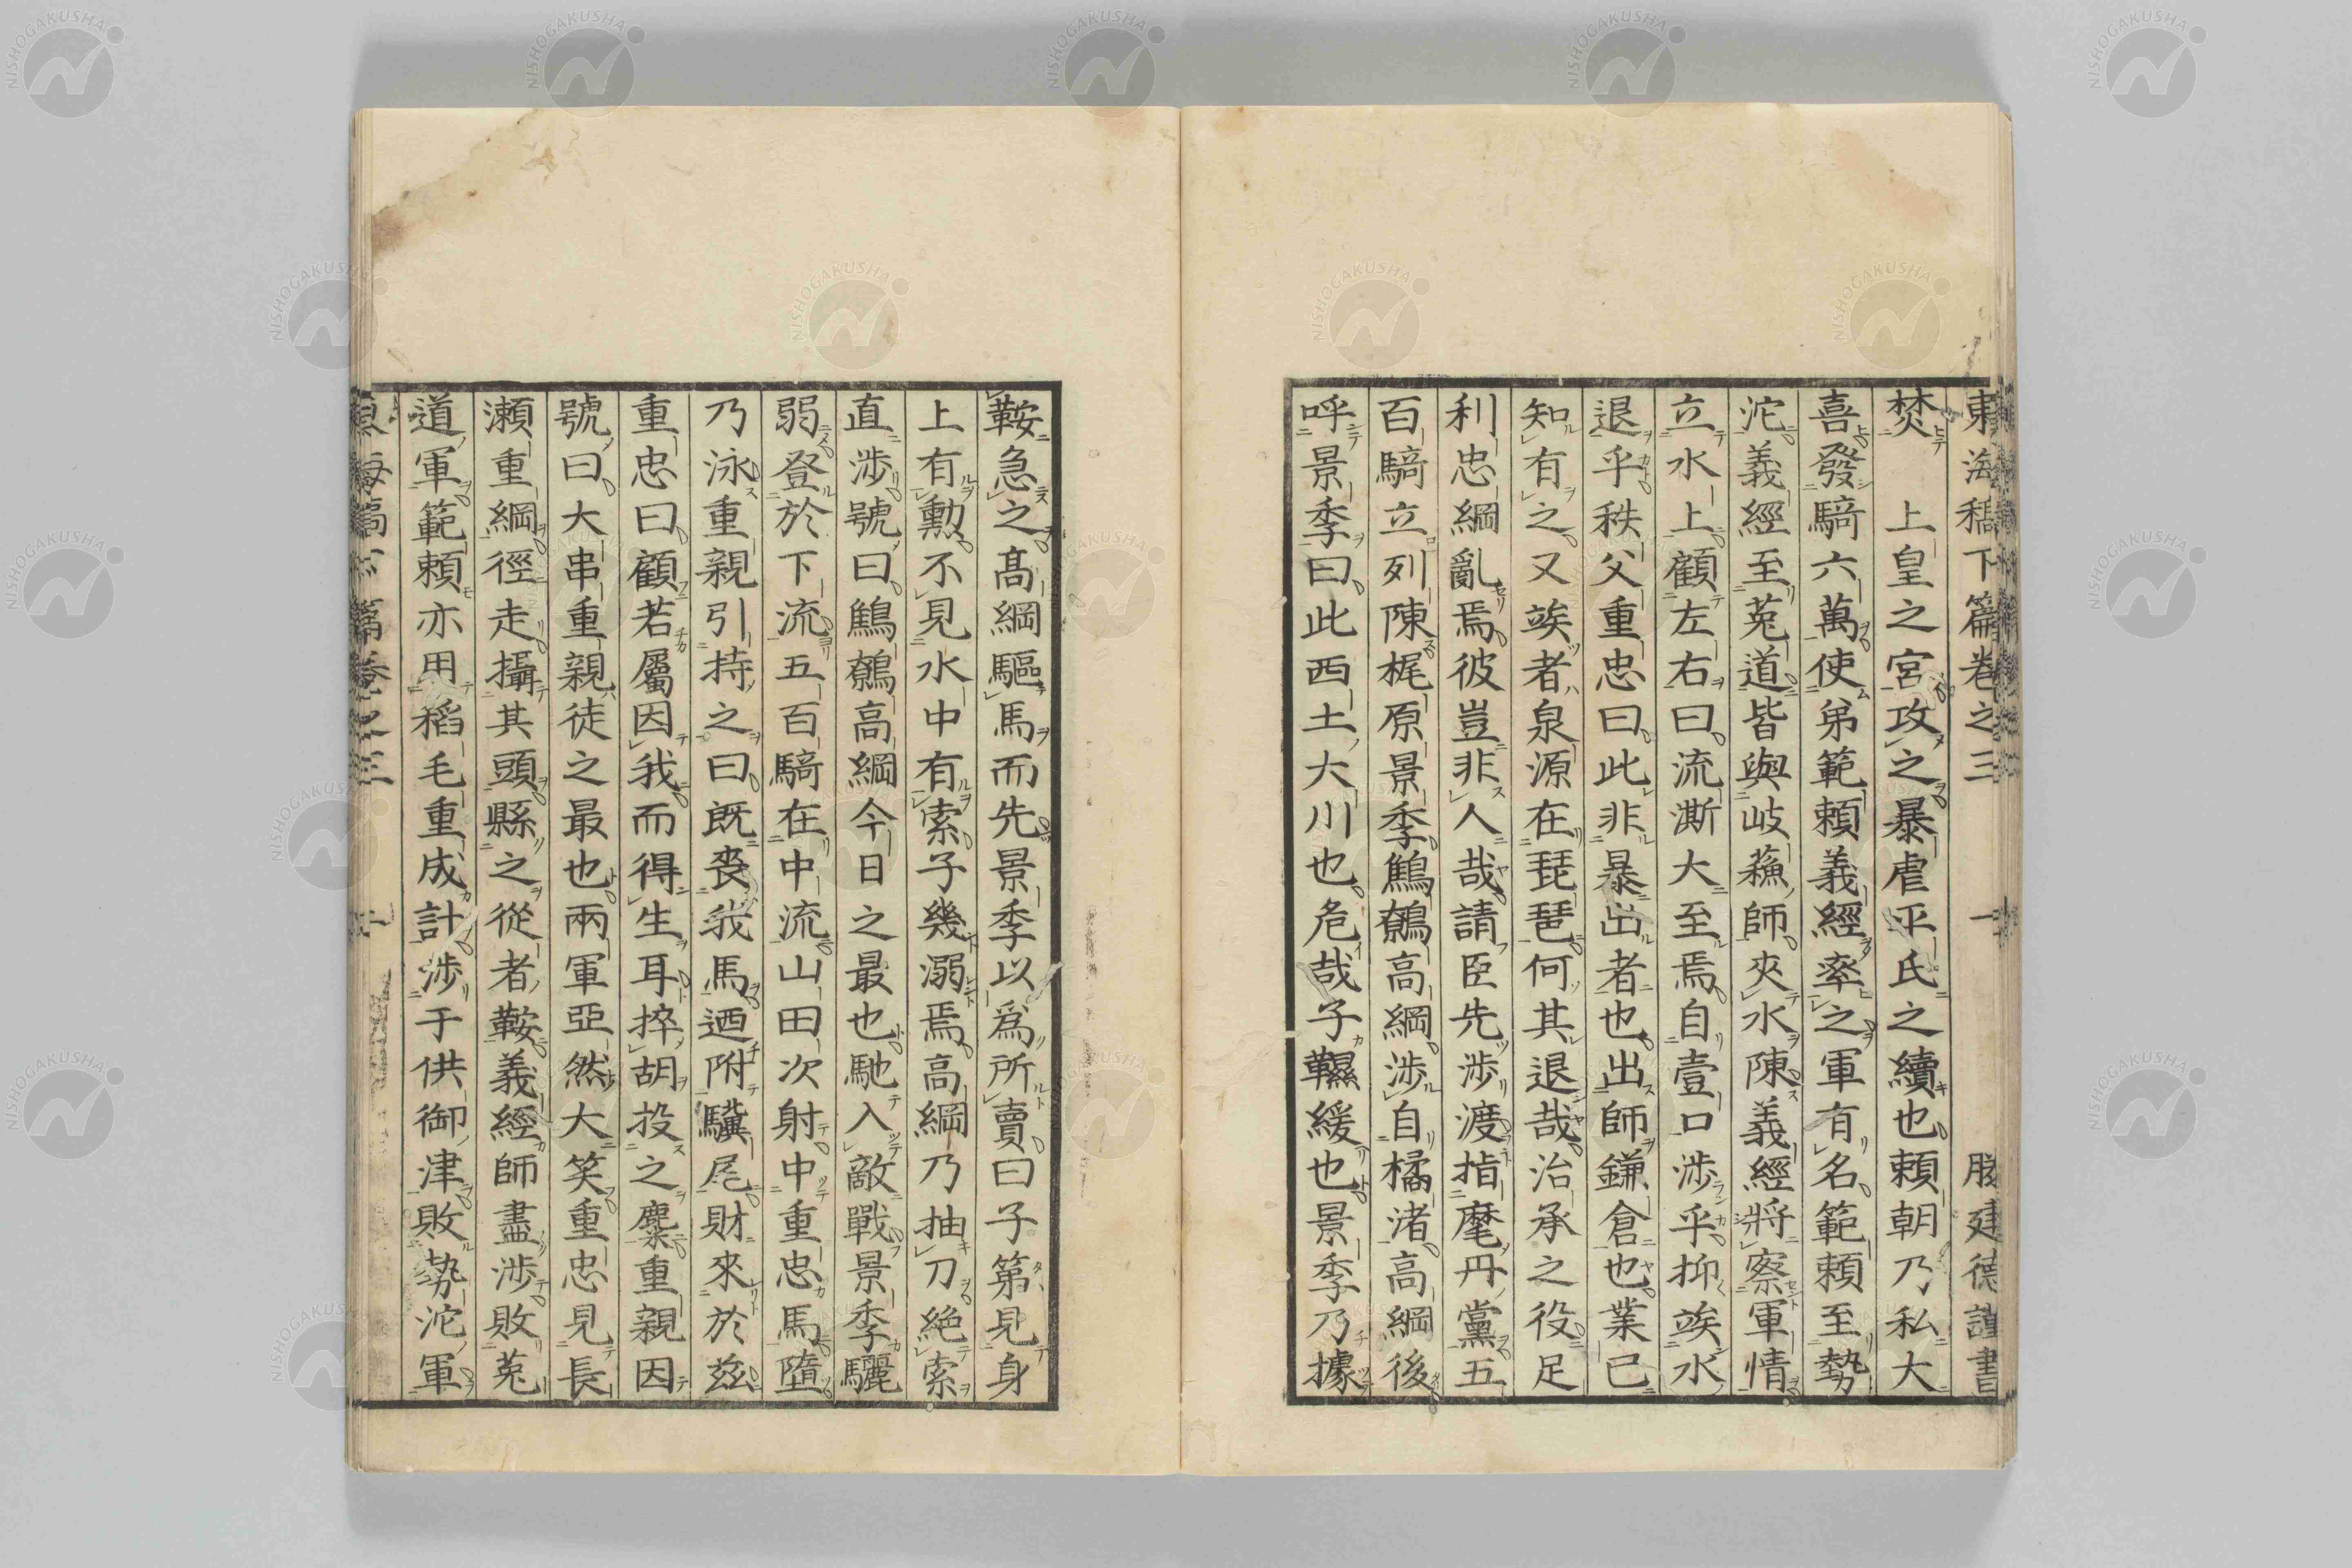 東海稿下篇卷之三 一 滕建德謹書
焚 上皇之宮攻之暴虐平氏之續也賴朝乃私大
喜發騎六萬使弟範賴義經率之軍有名範賴至勢
沱義經至菟道皆與岐蘓師夾水陳義經將察軍情
立水上顧左右曰流澌大至焉自壹口涉乎抑竢水
退乎秩父重忠曰此非暴出者也出師鎌倉也業已
知有之又竢者泉源在琵琶何其退哉治承之役足
利忠綱亂焉彼豈非人哉請臣先涉渡指麾丹黨五
百騎立列陳梶原景季鷦鷯高綱涉自橘渚高綱後
呼景季曰此西土大川也危哉子韅緩也景季乃據
鞍急之高綱驅馬而先景季以爲所賣曰子第見身
上有勳不見水中有索子幾溺焉高綱乃抽刀絶索
直涉號曰鷦鷯高綱今日之最也馳入敵戰景季驪
弱登於下流五百騎在中流山田次射中重忠馬墮
乃泳重親引持之曰既喪我馬迺附驥尾財來於玆
重忠曰顧若屬因我而得生耳捽胡投之麋重親因
號曰大串重親徒之最也兩軍亞然大笑重忠見長
瀨重綱徑走攝其頭縣之從者鞍義經師盡涉敗菟
道軍範賴亦用稻毛重成計涉于供御津敗勢沱軍